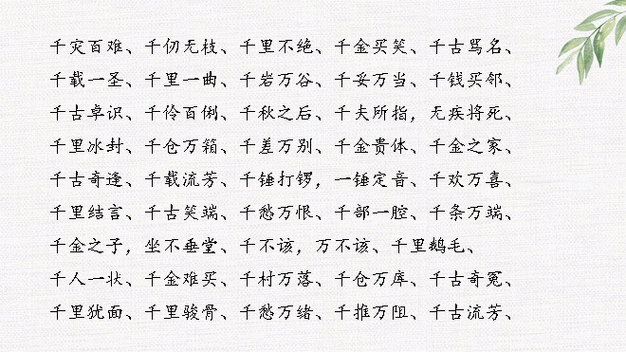 千灾百难、千仞无枝、千里不绝、千金买笑、千古骂名、
千载一圣、千里一曲、千岩万谷、千妥万当、千钱买邻、
千古卓识、千伶百俐、千秋之后、千夫所指，无疾将死、
千里冰封、千仓万箱、千差万别、千金贵体、千金之家、
千古奇逢、千载流芳、千锤打锣，一锤定音、千欢万喜、
千里结言、千古笑端、千愁万恨、千部一腔、千条万端、
千金之子，坐不垂堂、千不该，万不该、千里鹅毛、
千人一状、千金难买、千村万落、千仓万库、千古奇冤、
千里犹面、千里骏骨、千愁万绪、千推万阻、千古流芳、